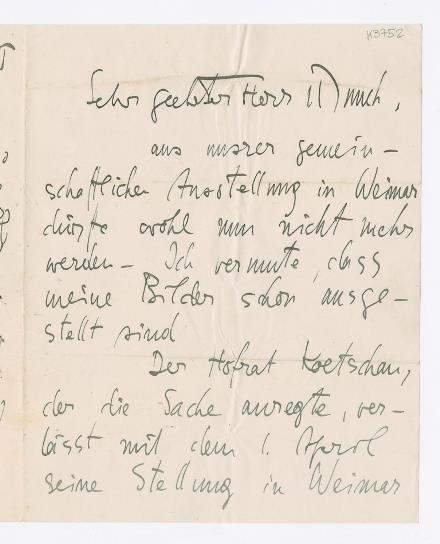 K3752
Sehr geehrter Herr Munch,
aus unsrer gemein-
schaftlichen Ausstellung in Weimar
dürfte wohl nun nicht mehr
werden – Ich vermute, dass
meine Bilder schon ausge-
stellt sind
Der Hofrat Koetschau,
der die Sache anregte, ver-
lässt mit dem 1. April
seine Stellung in Weimar